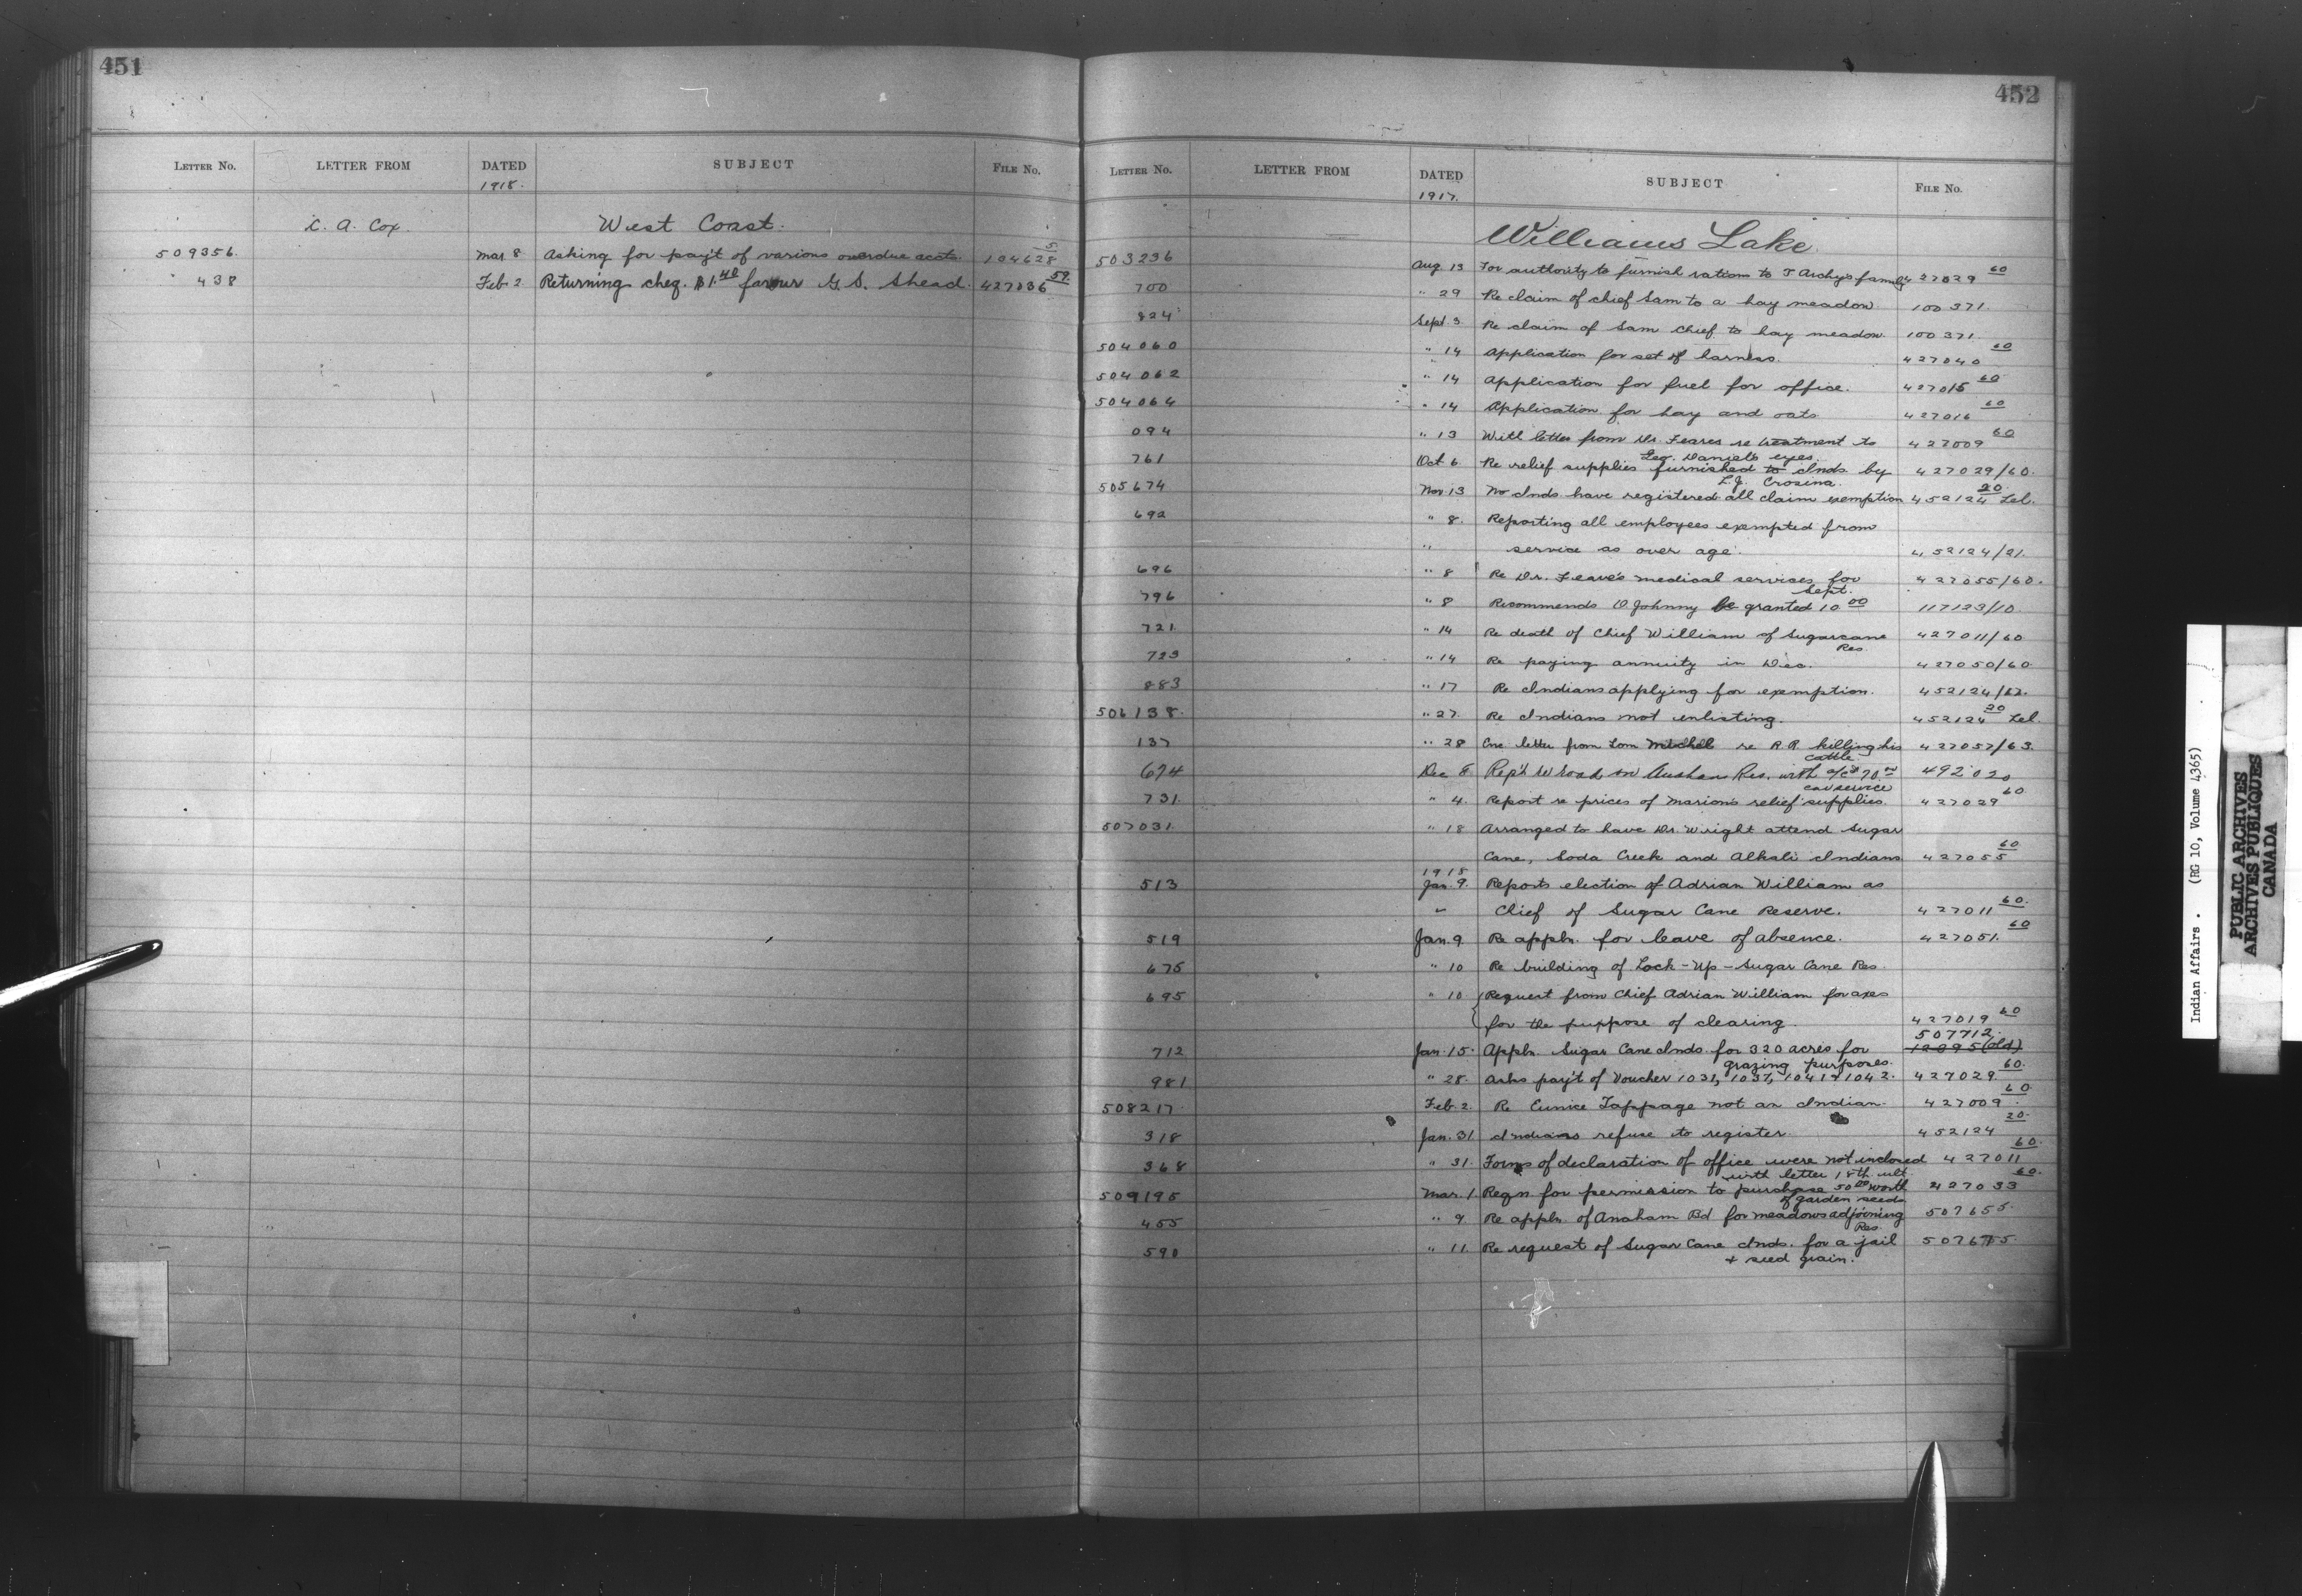 451
LETTER NO. LETTER FROM DATED SUBJECT FILE NO.
1918.
C. A. Cox West Coast.
509356. Mar 8 Asking for pay't of various overdue accts. 104628 5.
438 Feb 2 Returning cheq. $1.40 favour G. S. Shead. 427036 59.
452
LETTER NO. LETTER FROM DATED SUBJECT FILE NO.
1917.
Williams Lake.
503236 Aug. 13 For authority to furnish rations to T Archy's family 427029 60
700 " 29 Re claim of chief Sam to a hay meadow 100371.
824 Sept 3 Re claim of Sam chief to hay meadow. 100371.
504060 " 14 Application for set of harness. 427040 60
504062 " 14 Application for fuel for office. 427015 60
504064 " 14 Application for hay and oats 427016 60
094 " 13 With letter from Dr. Feares re treatment to 427009 60
Geo. Daniel's eyes.
761 Oct 6 Re relief supplies furnished to Inds by 427029/60.
L.J. Crosina.
505674 Nov. 13 No Inds have registered all claim exemption 452124 20. Lel.
692 " 8. Reporting all employees exempted from
" service as over age. 452124/21.
696 " 8 Re Dr. Feare's medical services for 427055/60.
Sept.
796 " 8 Recommends D Johnny be granted 10.00 117123/10.
721. " 14 Re death of Chief William of Sugarcane 427011/60
Res.
723 " 14 Re paying annuity in Dec. 427050/60.
883 " 17 Re Indians applying for exemption. 452124/22.
506138. " 27. Re Indians not enlisting. 452124 20 Lel.
137 " 28 Enc letter from Tom Mitchell re R.R. killing his 427057/63.
cattle.
674 Dec 8 Rep't re road on Res. with a/c 70.00 492020
car service
731. " 4. Report re prices of Marion's relief supplies. 427029 60.
507031. " 18 Arranged to have Dr. Wright attend Sugar
Cane, Soda Creek and Alkali Indians 427055 60
1918
513 Jan. 9. Reports election of Adrian William as
" Chief of Sugar Cane Reserve. 427011 60.
519 Jan. 9 Re appln. for leave of absence. 427051. 60
675 " 10 Re building of Lock-Up - Sugar Cane Res.
695 " 10 Request from Chief Adrian William for axes
for the purpose of clearing. 427019 60
507712.
712 Jan. 15. Appln. Sugar Cane Inds. for 320 acres for 12095 (old)
grazing purposes.
981 " 28. Asks pay't of Voucher 1031, 1037, 1041 & 1042. 427029. 60.
508217 Feb. 2. Re Eunice Tappage not an Indian. 427009. 60
318 Jan. 31 Indians refuse to register 452124 20.
368 " 31. Forms of declaration of office were not inclosed 427011 60.
with letter 18th. ult.
509195 Mar. 1 Reqn for permission to purchase 50.00 worth 427033 60.
of garden seeds
455 " 9. Re appln. of Anaham Bd for meadows adjoining 507655.
Res.
590 " 11. Re request of Sugar Cane Inds. for a jail 507655.
+ seed grain.
Indian Affairs. (RG 10, Volume 4365)
PUBLIC ARCHIVES
ARCHIVES PUBLIQUES
CANADA